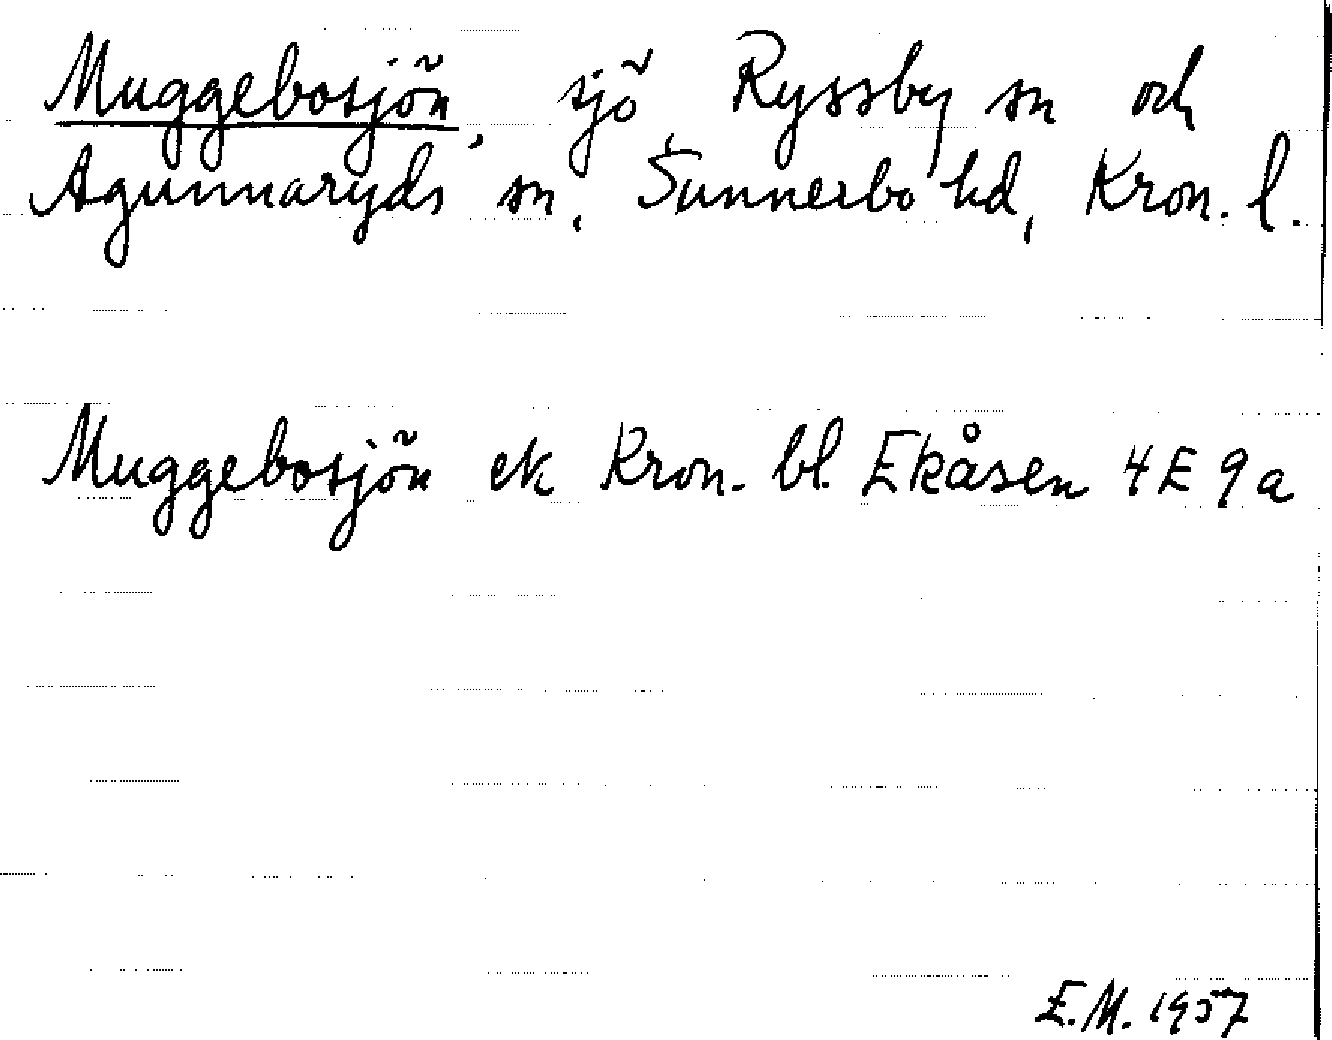 Muggebosjön, sjö, Ryssby sn och
Agunnaryds sn, Sunnerbo hd, Kron. l.
Muggebosjön ek Kron. bl. Ekåsen 4E 9a
E.M. 1957